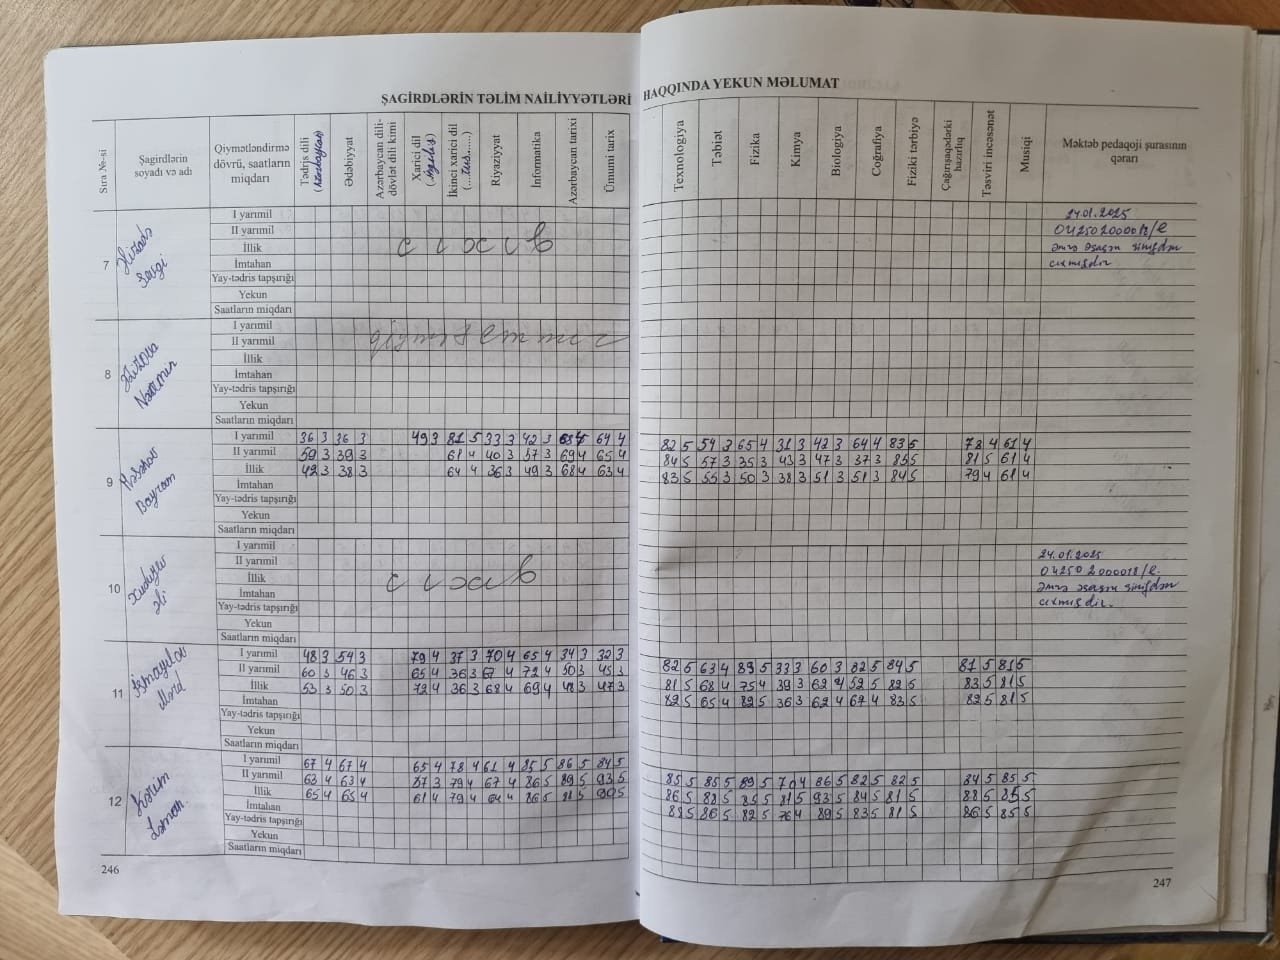 ŞAGİRDLƏRİN TƏLİM NAİLİYYƏTLƏRİ
Sıra №-si
Şagirdlərin soyadı və adı
Qiymətləndirmə dövrü, saatların miqdarı
Tədris dili (Azərbaycan)
Ədəbiyyat
Azərbaycan dili-dövlət dili kimi
Xarici dil (ingilis)
İkinci xarici dil (...rus......)
Riyaziyyat
İnformatika
Azərbaycan tarixi
Ümumi tarix
7
Əlizadə Sevgi
I yarımil
II yarımil
İllik
İmtahan
Yay-tədris tapşırığı
Yekun
Saatların miqdarı
8
Əzizova
I yarımil
II yarımil
İllik
İmtahan
Yay-tədris tapşırığı
Yekun
Saatların miqdarı
9
Həsənov Bayram
I yarımil 36 3 36 3 49 3 81 5 33 3 42 3 64 4
II yarımil 59 3 39 3 61 4 40 3 57 3 69 4 65 4
İllik 42 3 38 3 64 4 36 3 49 3 68 4 63 4
İmtahan
Yay-tədris tapşırığı
Yekun
Saatların miqdarı
10
Xudiyev Əli
I yarımil
II yarımil
İllik
İmtahan
Yay-tədris tapşırığı
Yekun
Saatların miqdarı
11
İsmayılov Murad
I yarımil 48 3 54 3 79 4 37 3 70 4 65 4 34 3 32 3
II yarımil 60 3 46 3 65 4 36 3 67 4 72 4 50 3 45 3
İllik 53 3 50 3 72 4 36 3 68 4 69 4 42 3 47 3
İmtahan
Yay-tədris tapşırığı
Yekun
Saatların miqdarı
12
Kərim Ləman
I yarımil 67 4 67 4 65 4 78 4 61 4 85 5 86 5 84 5
II yarımil 63 4 63 4 57 3 79 4 67 4 86 5 89 5 93 5
İllik 65 4 65 4 61 4 79 4 64 4 86 5 88 5 90 5
İmtahan
Yay-tədris tapşırığı
Yekun
Saatların miqdarı
246
HAQQINDA YEKUN MƏLUMAT
Texnologiya
Təbiət
Fizika
Kimya
Biologiya
Coğrafiya
Fiziki tərbiyə
Çağırışaqədərki hazırlıq
Təsviri incəsənət
Musiqi
Məktəb pedaqoji şurasının qərarı
24.01.2025
042502000018/e
əmrə əsasən sinifdən
çıxmışdır
82 5 54 3 65 4 31 3 42 3 64 4 83 5 78 4 61 4
84 5 57 3 35 3 43 3 47 3 37 3 85 5 81 5 61 4
83 5 55 3 50 3 38 3 51 3 51 3 84 5 79 4 61 4
24.01.2025
04250 2000018/e.
əmrə əsasən sinifdən
çıxmışdır.
82 5 63 4 89 5 33 3 60 3 82 5 84 5 81 5 81 5
81 5 68 4 75 4 39 3 62 4 52 5 82 5 83 5 81 5
82 5 65 4 82 5 36 3 62 4 67 4 83 5 82 5 81 5
85 5 85 5 89 5 70 4 86 5 82 5 82 5 84 5 85 5
86 5 88 5 85 5 81 5 93 5 84 5 81 5 88 5 85 5
85 5 86 5 82 5 76 4 89 5 83 5 81 5 86 5 85 5
247